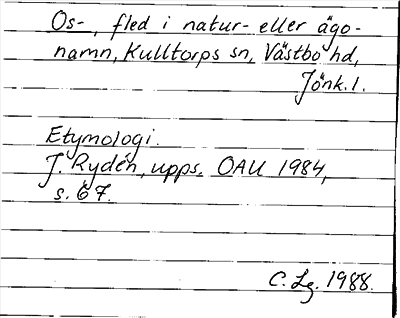 Os-, fled i natur- eller ägo-
namn, Kulltorps sn, Västbo hd,
Jönk. l.
Etymologi.
J. Rydén, upps. OAU 1984,
s. 67.
C. Lg. 1988.